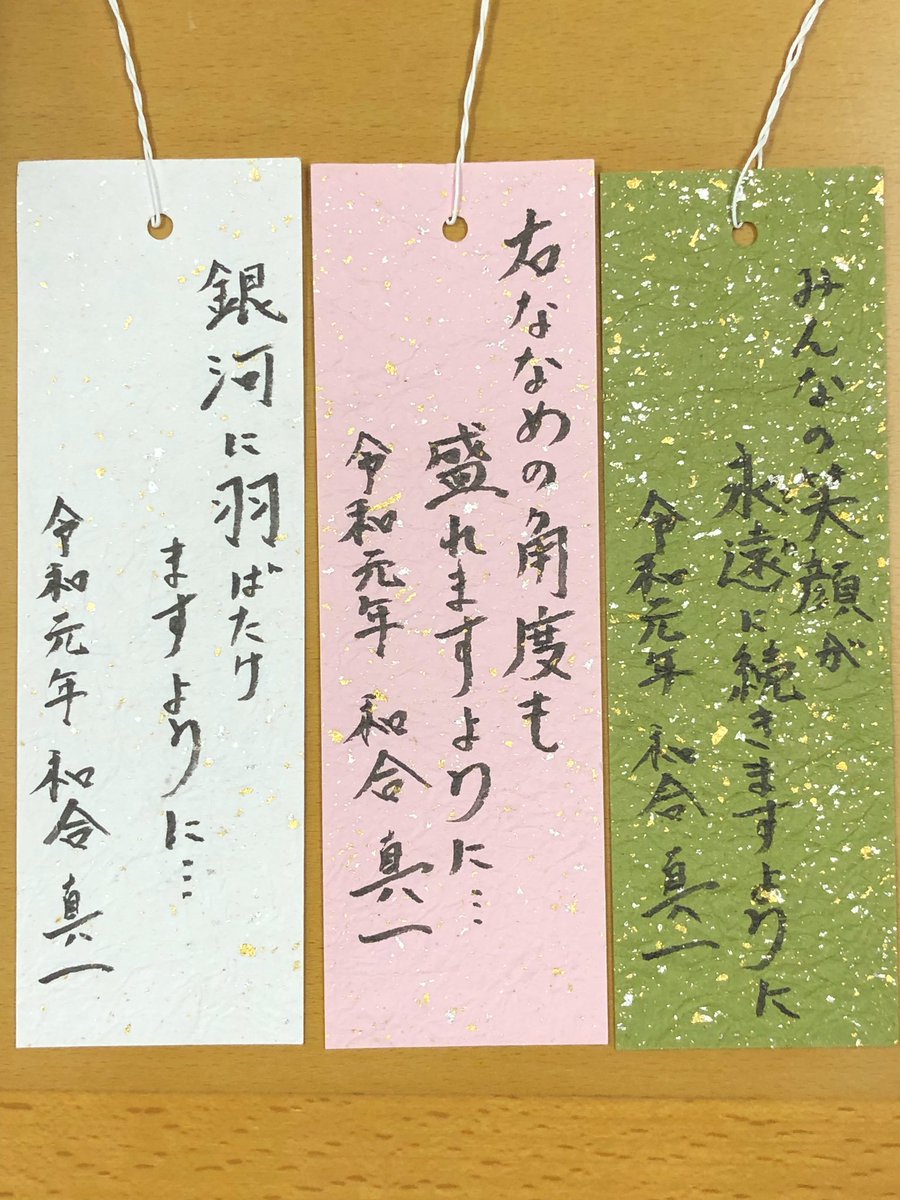 みんなの笑顔が
とわ
永遠に続きますように
令和元年 和合真一
右ななめの角度も
盛れますように…
令和元年 和合真一
銀河に羽ばたけ
ますように…
令和元年 和合真一